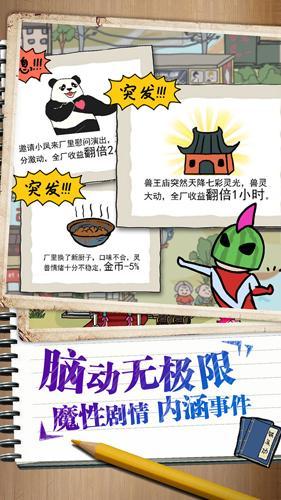 息!!!
邀请小凤来厂里慰问演出，
分激动，全厂收益翻倍2
突发!!!
兽王庙突然天降七彩灵光，兽灵
大动，全厂收益翻倍1小时。
突发!!!
厂里换了新厨子，口味不合，灵
兽情绪十分不稳定，金币-5%
脑动无极限
魔性剧情 内涵事件